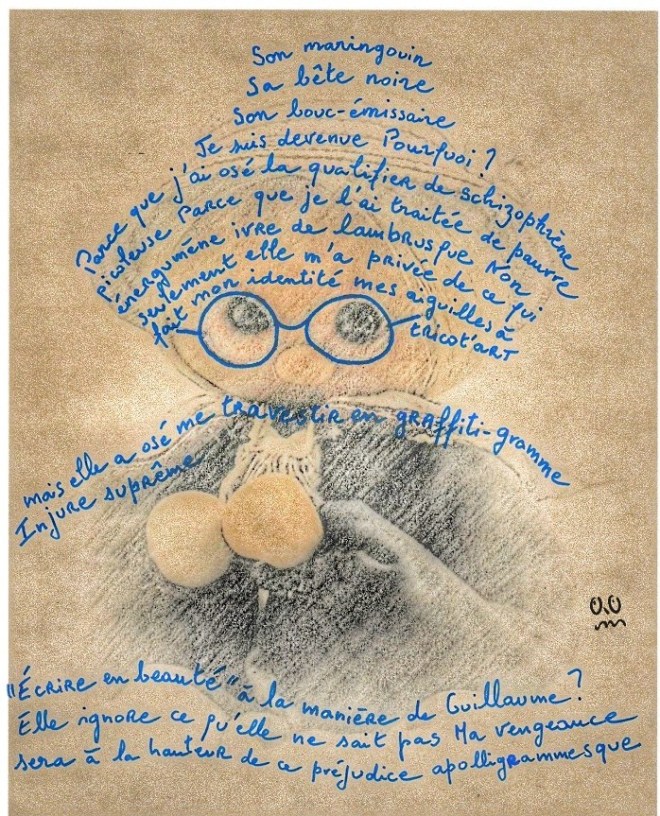 Son maringouin
Sa bête noire
Son bouc-émissaire
Je suis devenue Pourquoi ?
Parce que j'ai osé la qualifier de schizophrène
picoleuse Parce que je l'ai traitée de pauvre
énergumène ivre de lambrusque Non
seulement elle m'a privée de ce qui
fait mon identité mes aiguilles à
tricot'ART
mais elle a osé me travestir en graffiti-gramme
Injure suprême
"Écrire en beauté" à la manière de Guillaume ?
Elle ignore ce qu'elle ne sait pas Ma vengeance
sera à la hauteur de ce préjudice apolligrammesque